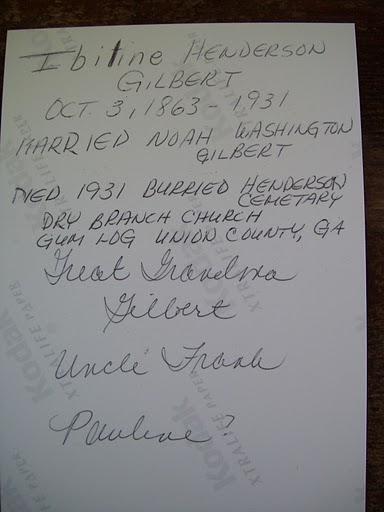 Ibitine HENDERSON
GILBERT
OCT. 3, 1863 - 1931
MARRIED NOAH WASHINGTON
GILBERT
DIED 1931 BURRIED HENDERSON
CEMETARY
DRY BRANCH CHURCH
GUM LOG UNION COUNTY, GA
Great Grandma
Gilbert
Uncle Frank
Pauline?
Kodak
XTRALIFE PAPER